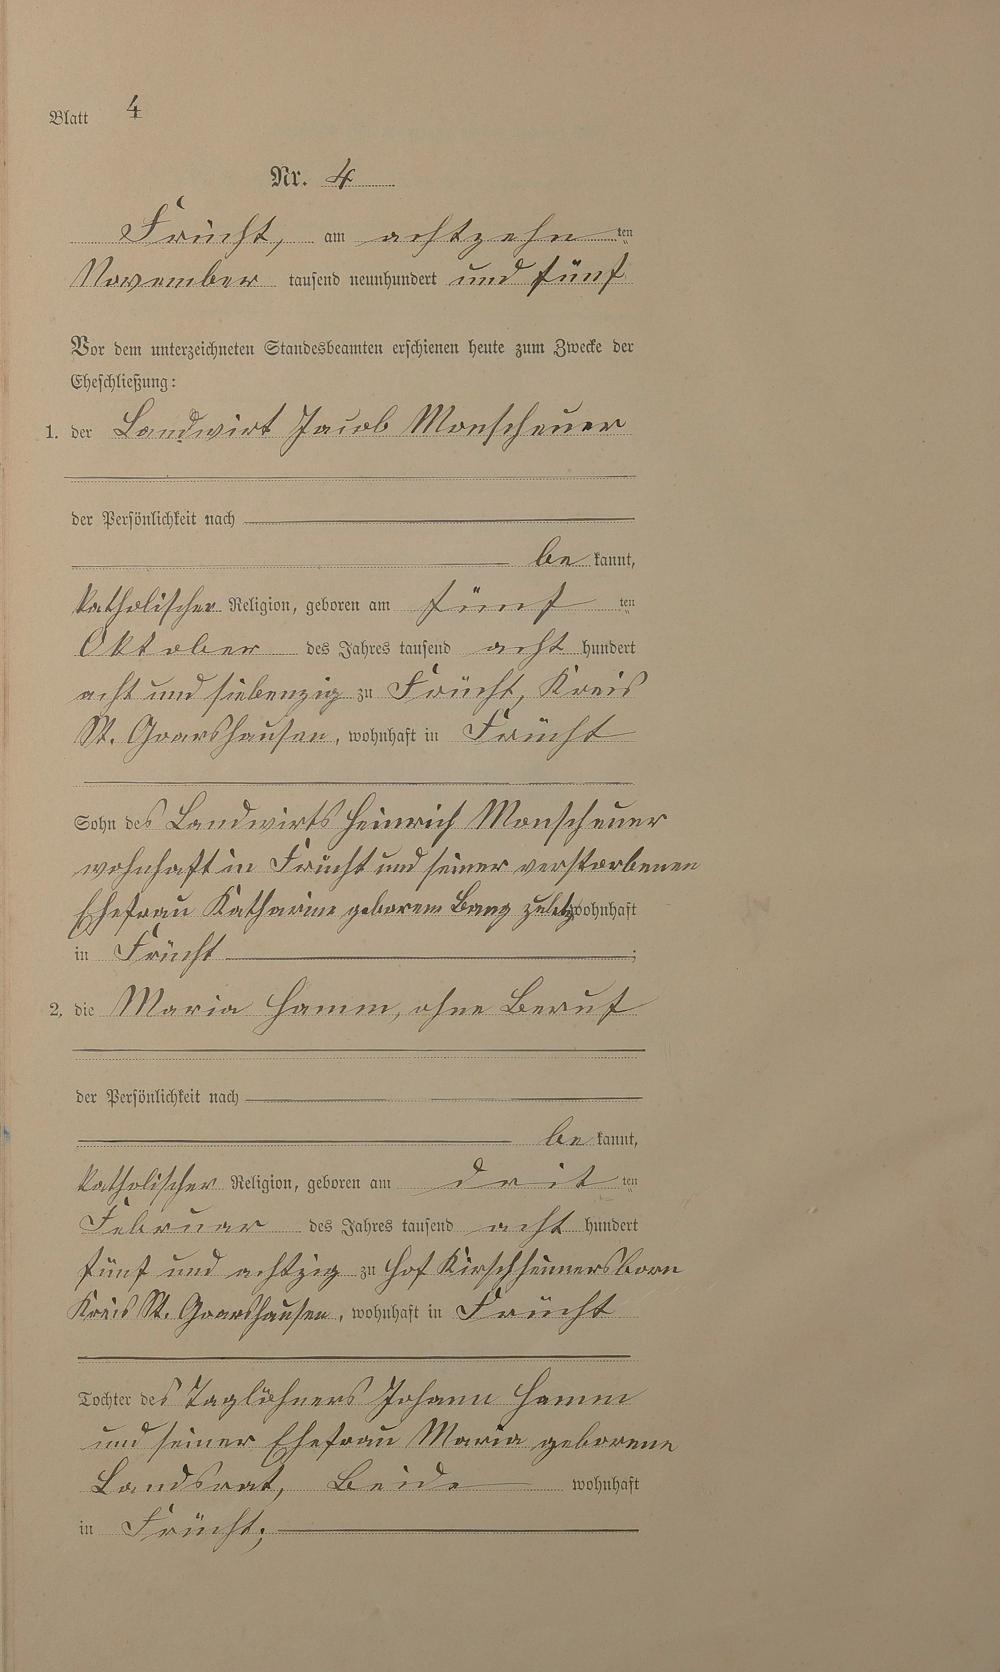 Blatt 4
Nr. 4
Frücht, am achtzehn ten
November tausend neunhundert und fünf
Vor dem unterzeichneten Standesbeamten erschienen heute zum Zwecke der
Eheschließung:
1. der Landwirt Jacob Monscheuer
der Persönlichkeit nach
be kannt,
katholischer Religion, geboren am fünf ten
Oktober des Jahres tausend acht hundert
acht und siebenzig zu Frücht, Kreis
St. Goarshausen, wohnhaft in Frücht
Sohn des Landwirts Heinrich Monscheuer
wohnhaft in Frücht und seiner verstorbenen
Ehefrau Katharine geborenen zuletzt wohnhaft
in Frücht ;
2. die Maria Hamm, ohne Beruf
der Persönlichkeit nach
be kannt,
katholischer Religion, geboren am drit ten
Februar des Jahres tausend acht hundert
fünf und achtzig zu Hof Kirschheimersborn
Kreis St. Goarshausen, wohnhaft in Frücht
Tochter des Taglöhners Johann Hamm
und seiner Ehefrau Maria geborene
Landsrat, Beide wohnhaft
in Frücht;